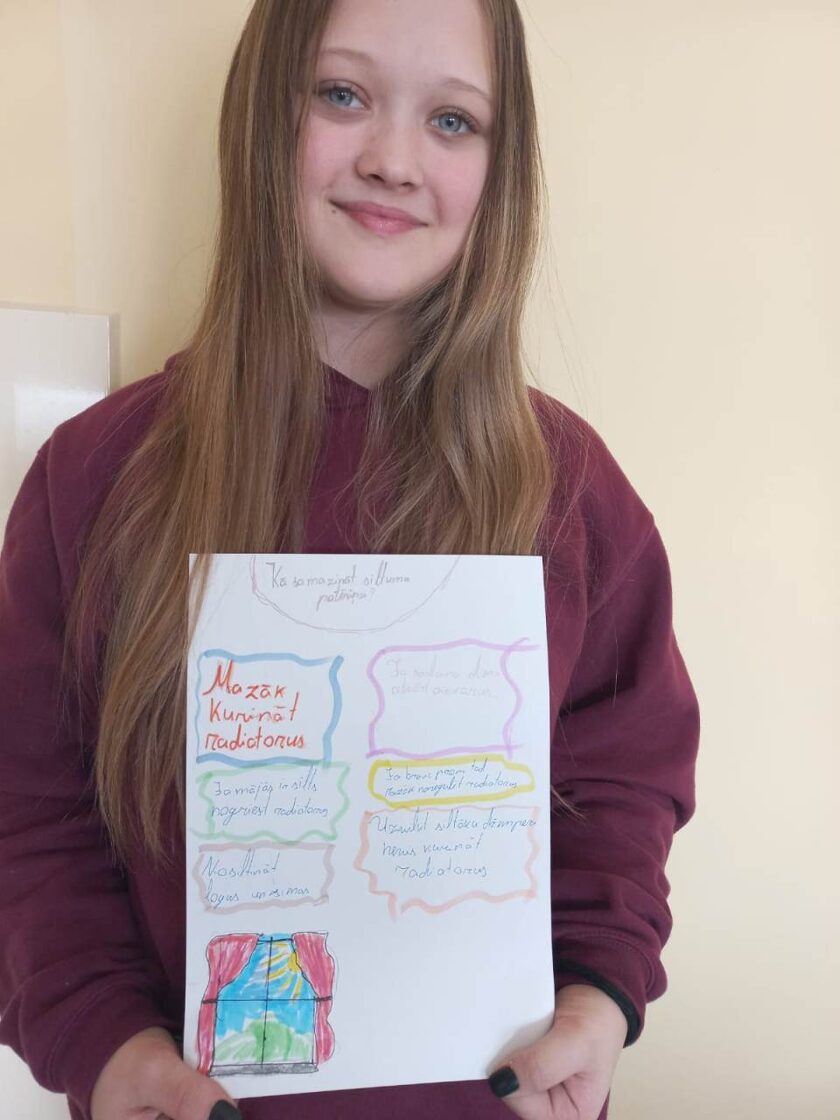 Kā samazināt siltuma
patēriņu?
Mazāk
kurināt
radiatorus
Ja mājās ir silts
nogriezt radiatorus
Nosiltināt
logus un sienas
Ja
Ja brauc prom tad
mazāk noregulēt radiatorus
Uzvilkt siltāku džemperi
nevis kurināt
radiatorus